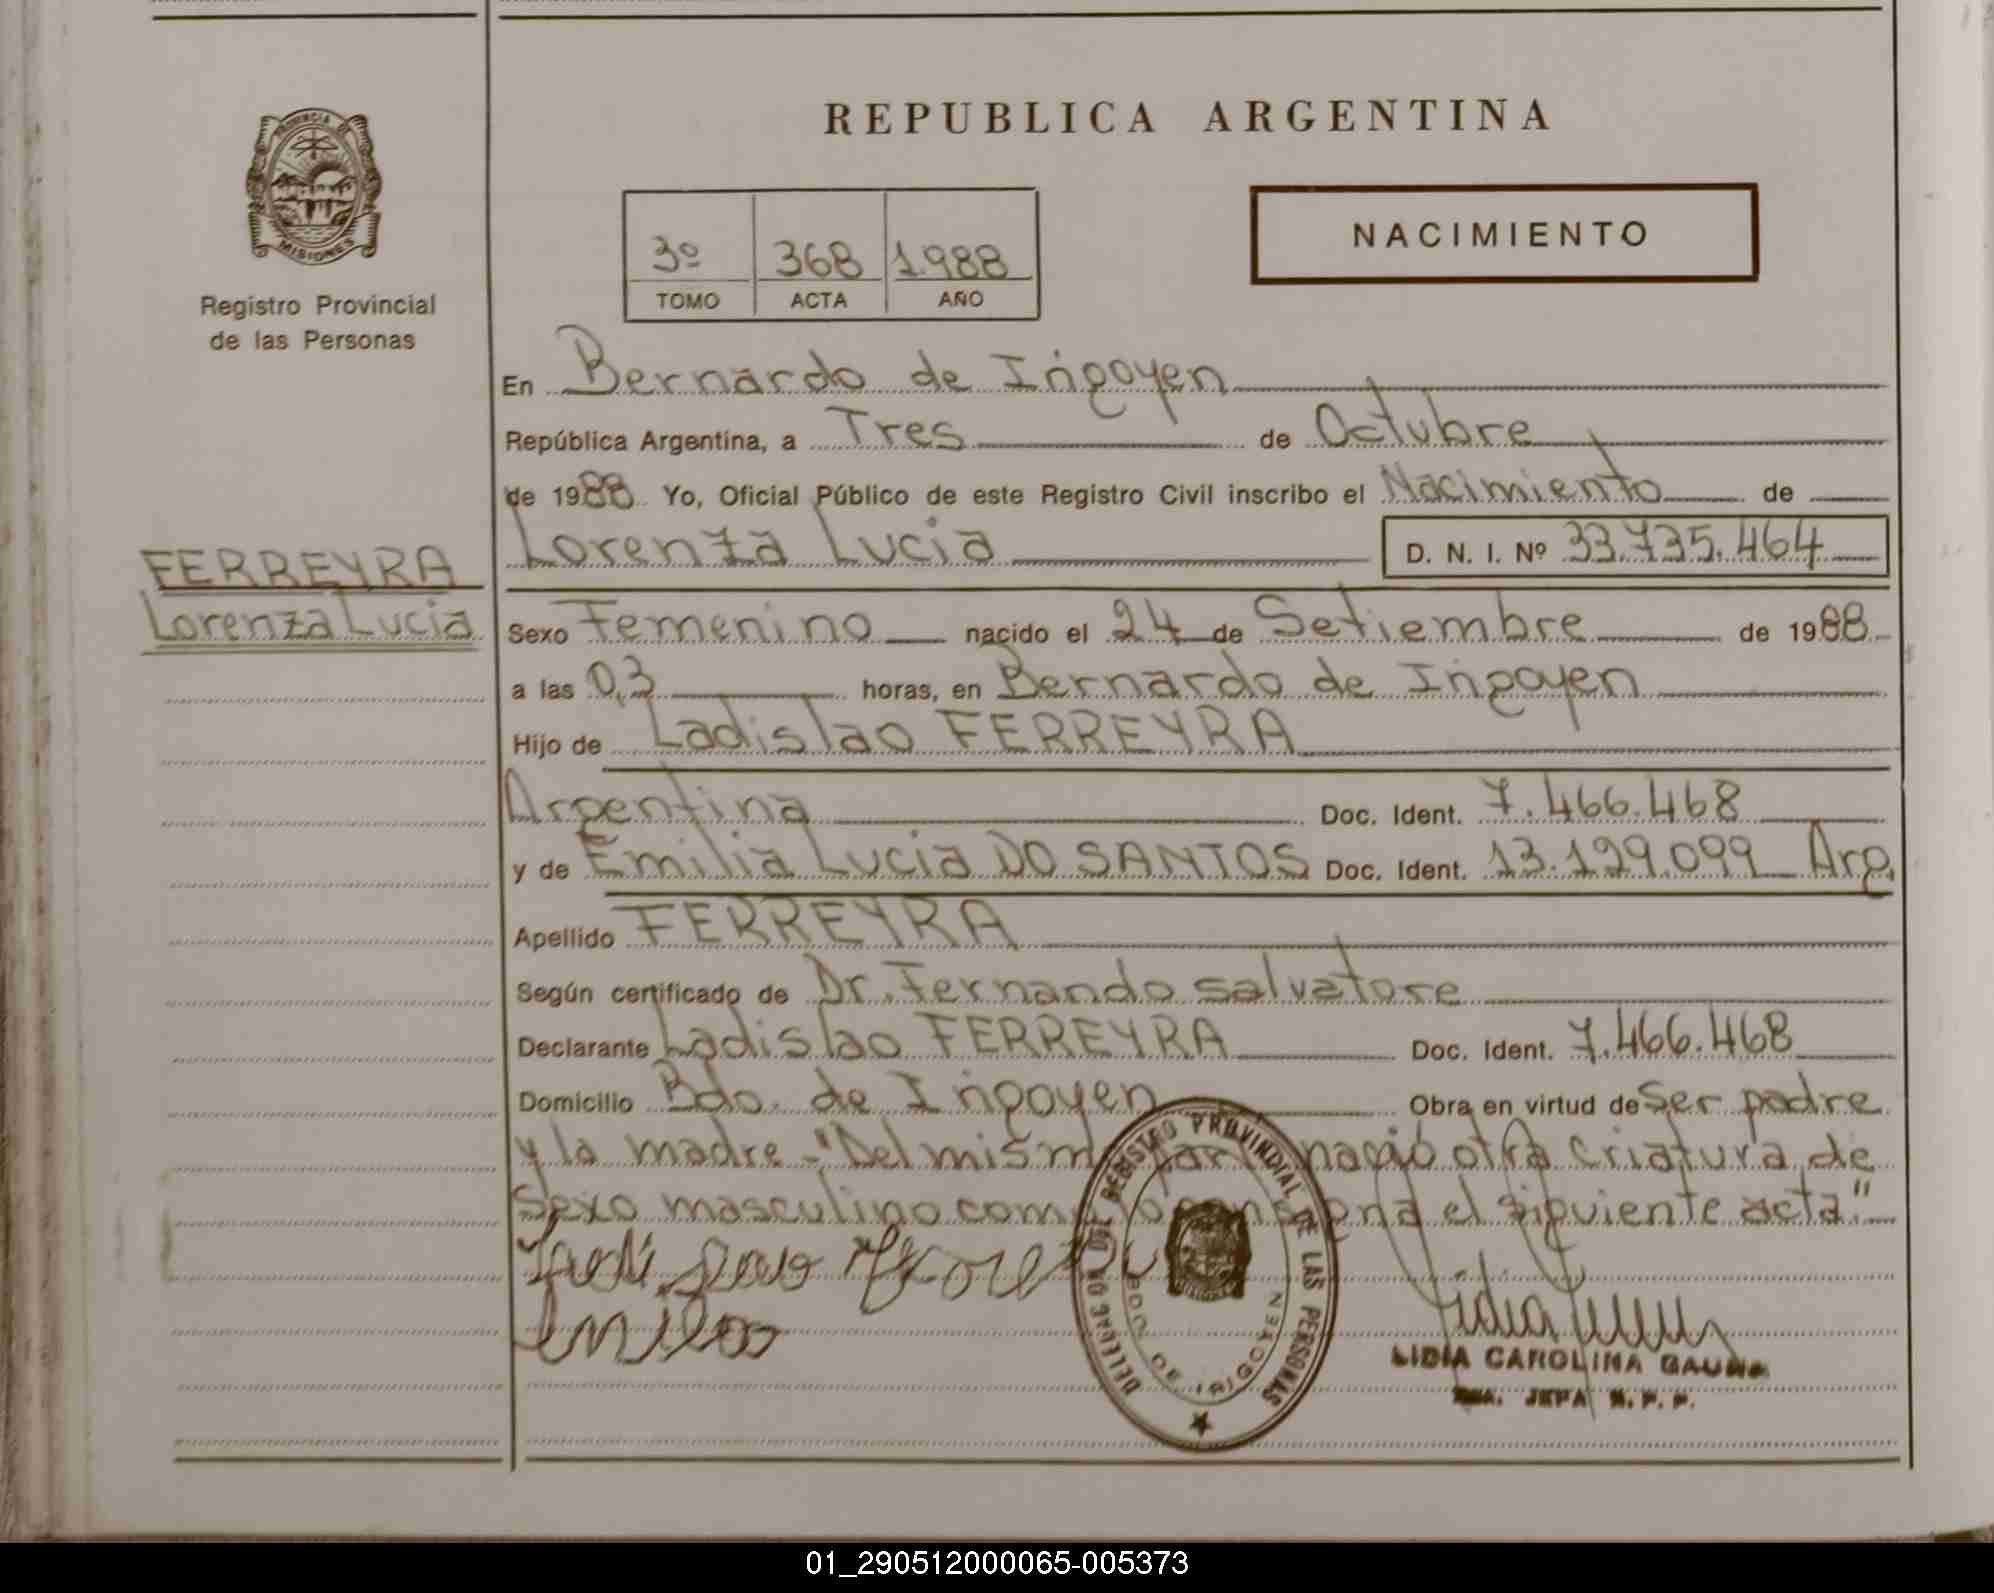 REPUBLICA ARGENTINA
PROVINCIA DE
MISIONES
Registro Provincial
de las Personas
3º 368 1.988
TOMO ACTA AÑO
NACIMIENTO
En Bernardo de Irigoyen
República Argentina, a Tres de Octubre
de 1988 Yo, Oficial Público de este Registro Civil inscribo el Nacimiento de
Lorenza Lucia D. N. I. Nº 33.735.464
FERREYRA
Lorenza Lucia
Sexo Femenino nacido el 24 de Setiembre de 1988
a las 0,3 horas, en Bernardo de Irigoyen
Hijo de Ladislao FERREYRA
Argentina Doc. Ident. 7.466.468
y de Emilia Lucia DO SANTOS Doc. Ident. 13.129.099 Arg.
Apellido FERREYRA
Según certificado de Dr. Fernando salvatore
Declarante Ladislao FERREYRA Doc. Ident. 7.466.468
Domicilio Bdo. de Irigoyen Obra en virtud de ser padre
y la madre - "Del mismo parto nació otra criatura de
sexo masculino como lo consigna el siguiente acta."
DELEGACION DEL REGISTRO PROVINCIAL DE LAS PERSONAS
BDO. DE IRIGOYEN
LIDIA CAROLINA GAUNA
JEFA R. P. P.
01_290512000065-005373